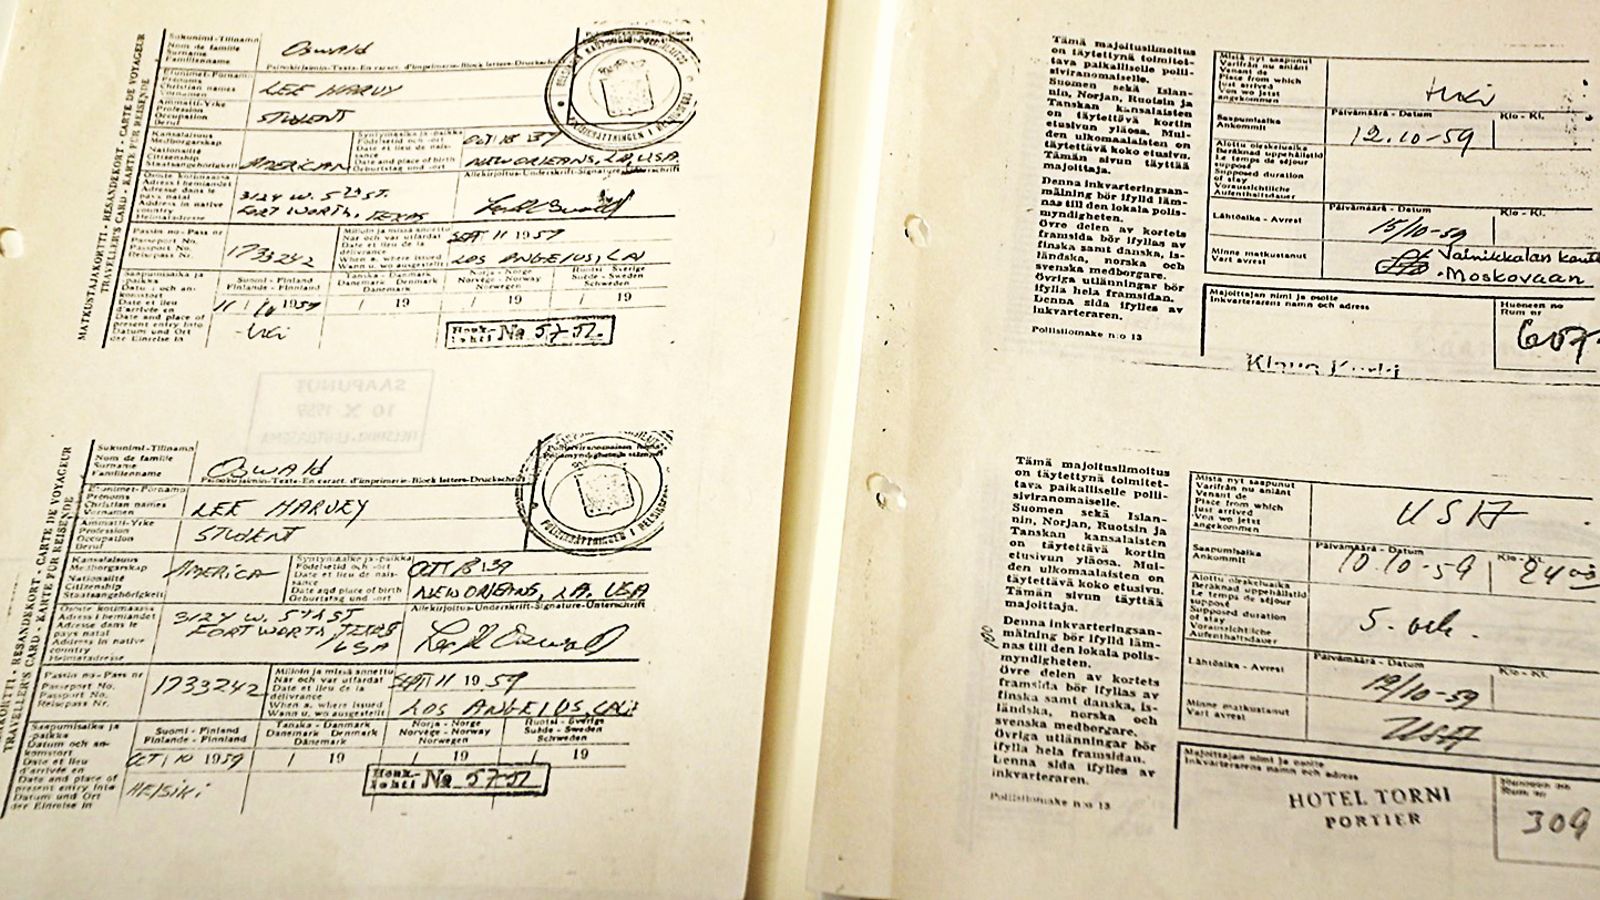 MATKUSTAJAKORTTI - RESANDEKORT - CARTE DE VOYAGEUR
TRAVELLER'S CARD - KARTE FÜR REISENDE
Sukunimi-Tillnamn
Nom de famille
Surname
Familienname
Oswald
Painokirjaimin-Texta-En caract. d'imprimerie-Block letters-Druckschrift
Etunimet-Förnamn
Prénoms
Christian names
Vornamen
LEE HARVY
Ammatti-Yrke
Profession
Occupation
Beruf
STUDENT
Kansalaisuus
Medborgarskap
Nationalité
Citizenship
Staatsangehörigkeit
AMERICAN
Syntymäaika ja -paikka
Födelsetid och -ort
Date et lieu de nais-
sance
Date and place of birth
Geburtstag und -ort
OCT 18 39
NEW ORLEANS, LA, USA
Osoite kotimaassa
Adress i hemlandet
Adresse dans le
pays natal
Address in native
country
Heimatadresse
3124 W. 5th ST.
FORT WORTH, TEXAS
Allekirjoitus-Underskrift-Signature-Unterschrift
Passin no-Pass nr
Passeport No.
Passport No.
Reisepass Nr.
1733242
Milloin ja missä annettu
När och var utfärdat
Date et lieu de la
délivrance
When a. where issued
Wann u. wo ausgestellt
SEPT 11 1959
LOS ANGELUS, CAL
Saapumisaika ja
-paikka
Datum och an-
komstort
Date et lieu
d'arrivée en
Date and place of
present entry into
Datum und Ort
der Einreise in
Suomi - Finland
Finlande - Finnland
11 / 10 1959
Tanska - Danmark
Danemark Denmark
Dänemark
/ 19
Norja - Norge
Norvège - Norway
Norwegen
/ 19
Ruotsi - Sverige
Suède - Sweden
Schweden
/ 19
Henk.-
lehti No 57-51.
SAAPUNUT
10 X 1959
Sukunimi-Tillnamn
Nom de famille
Surname
Familienname
Oswald
Painokirjaimin-Texta-En caract. d'imprimerie-Block letters-Druckschrift
Etunimet-Förnamn
Prénoms
Christian names
Vornamen
LEE HARVEY
Ammatti-Yrke
Profession
Occupation
Beruf
STUDENT
Kansalaisuus
Medborgarskap
Nationalité
Citizenship
Staatsangehörigkeit
AMERICA
Syntymäaika ja -paikka
Födelsetid och -ort
Date et lieu de nais-
sance
Date and place of birth
Geburtstag und -ort
OCT 18 39
NEW ORLEANS, LA. USA
Osoite kotimaassa
Adress i hemlandet
Adresse dans le
pays natal
Address in native
country
Heimatadresse
3124 W. 5th ST
FORT WORTH TEXAS
USA
Allekirjoitus-Underskrift-Signature-Unterschrift
Lee H Oswald
Passin no-Pass nr
Passeport No.
Passport No.
Reisepass Nr.
1733242
Milloin ja missä annettu
När och var utfärdat
Date et lieu de la
délivrance
When a. where issued
Wann u. wo ausgestellt
SEPT 11 1959
LOS ANGELUS, CALI
Saapumisaika ja
-paikka
Datum och an-
komstort
Date et lieu
d'arrivée en
Date and place of
present entry into
Datum und Ort
der Einreise in
Suomi - Finland
Finlande - Finnland
OCT / 10 1959
HElSiKi
Tanska - Danmark
Danemark Denmark
Dänemark
/ 19
Norja - Norge
Norvège - Norway
Norwegen
/ 19
Ruotsi - Sverige
Suède - Sweden
Schweden
/ 19
Henk.-
lehti No 57-51.
Tämä majoitusilmoitus
on täytettynä toimitet-
tava paikalliselle polii-
siviranomaiselle.
Suomen sekä Islan-
nin, Norjan, Ruotsin ja
Tanskan kansalaisten
on täytettävä kortin
etusivun yläosa. Mui-
den ulkomaalaisten on
täytettävä koko etusivu.
Tämän sivun täyttää
majoittaja.
Denna inkvarteringsan-
mälning bör ifylld läm-
nas till den lokala polis-
myndigheten.
Övre delen av kortets
framsida bör ifyllas av
finska samt danska, is-
ländska, norska och
svenska medborgare.
Övriga utlänningar bör
ifylla hela framsidan.
Denna sida ifylles av
inkvarteraren.
Poliisilomake n:o 13
Mistä nyt saapunut
Varifrån nu anlänt
Venant de
Place from which
just arrived
Von wo jetzt
angekommen
Saapumisaika
Ankommit
Päivämäärä - Datum
12.10-59
Klo - Kl.
Aiottu oleskeluaika
Beräknad uppehållstid
Le temps de séjour
supposé
Supposed duration
of stay
Voraussichtliche
Aufenthaltsdauer
Lähtöaika - Avrest
Päivämäärä - Datum
15/10-59
Klo - Kl.
Minne matkustanut
Vart avrest
Vainikkalan kautt
-Moskovaan
Majoittajan nimi ja osoite
Inkvarterarens namn och adress
Klaus Kurki
Huoneen no
Rum nr
607.
Tämä majoitusilmoitus
on täytettynä toimitet-
tava paikalliselle polii-
siviranomaiselle.
Suomen sekä Islan-
nin, Norjan, Ruotsin ja
Tanskan kansalaisten
on täytettävä kortin
etusivun yläosa. Mui-
den ulkomaalaisten on
täytettävä koko etusivu.
Tämän sivun täyttää
majoittaja.
Denna inkvarteringsan-
mälning bör ifylld läm-
nas till den lokala polis-
myndigheten.
Övre delen av kortets
framsida bör ifyllas av
finska samt danska, is-
ländska, norska och
svenska medborgare.
Övriga utlänningar bör
ifylla hela framsidan.
Denna sida ifylles av
inkvarteraren.
Poliisilomake n:o 13
Mistä nyt saapunut
Varifrån nu anlänt
Venant de
Place from which
just arrived
Von wo jetzt
angekommen
USA
Saapumisaika
Ankommit
Päivämäärä - Datum
10.10-59
Klo - Kl.
24 00
Aiottu oleskeluaika
Beräknad uppehållstid
Le temps de séjour
supposé
Supposed duration
of stay
Voraussichtliche
Aufenthaltsdauer
Lähtöaika - Avrest
Päivämäärä - Datum
12/10-59
Klo - Kl.
Minne matkustanut
Vart avrest
USA
Majoittajan nimi ja osoite
Inkvarterarens namn och adress
HOTEL TORNI
PORTIER
Huoneen no
Rum nr
309